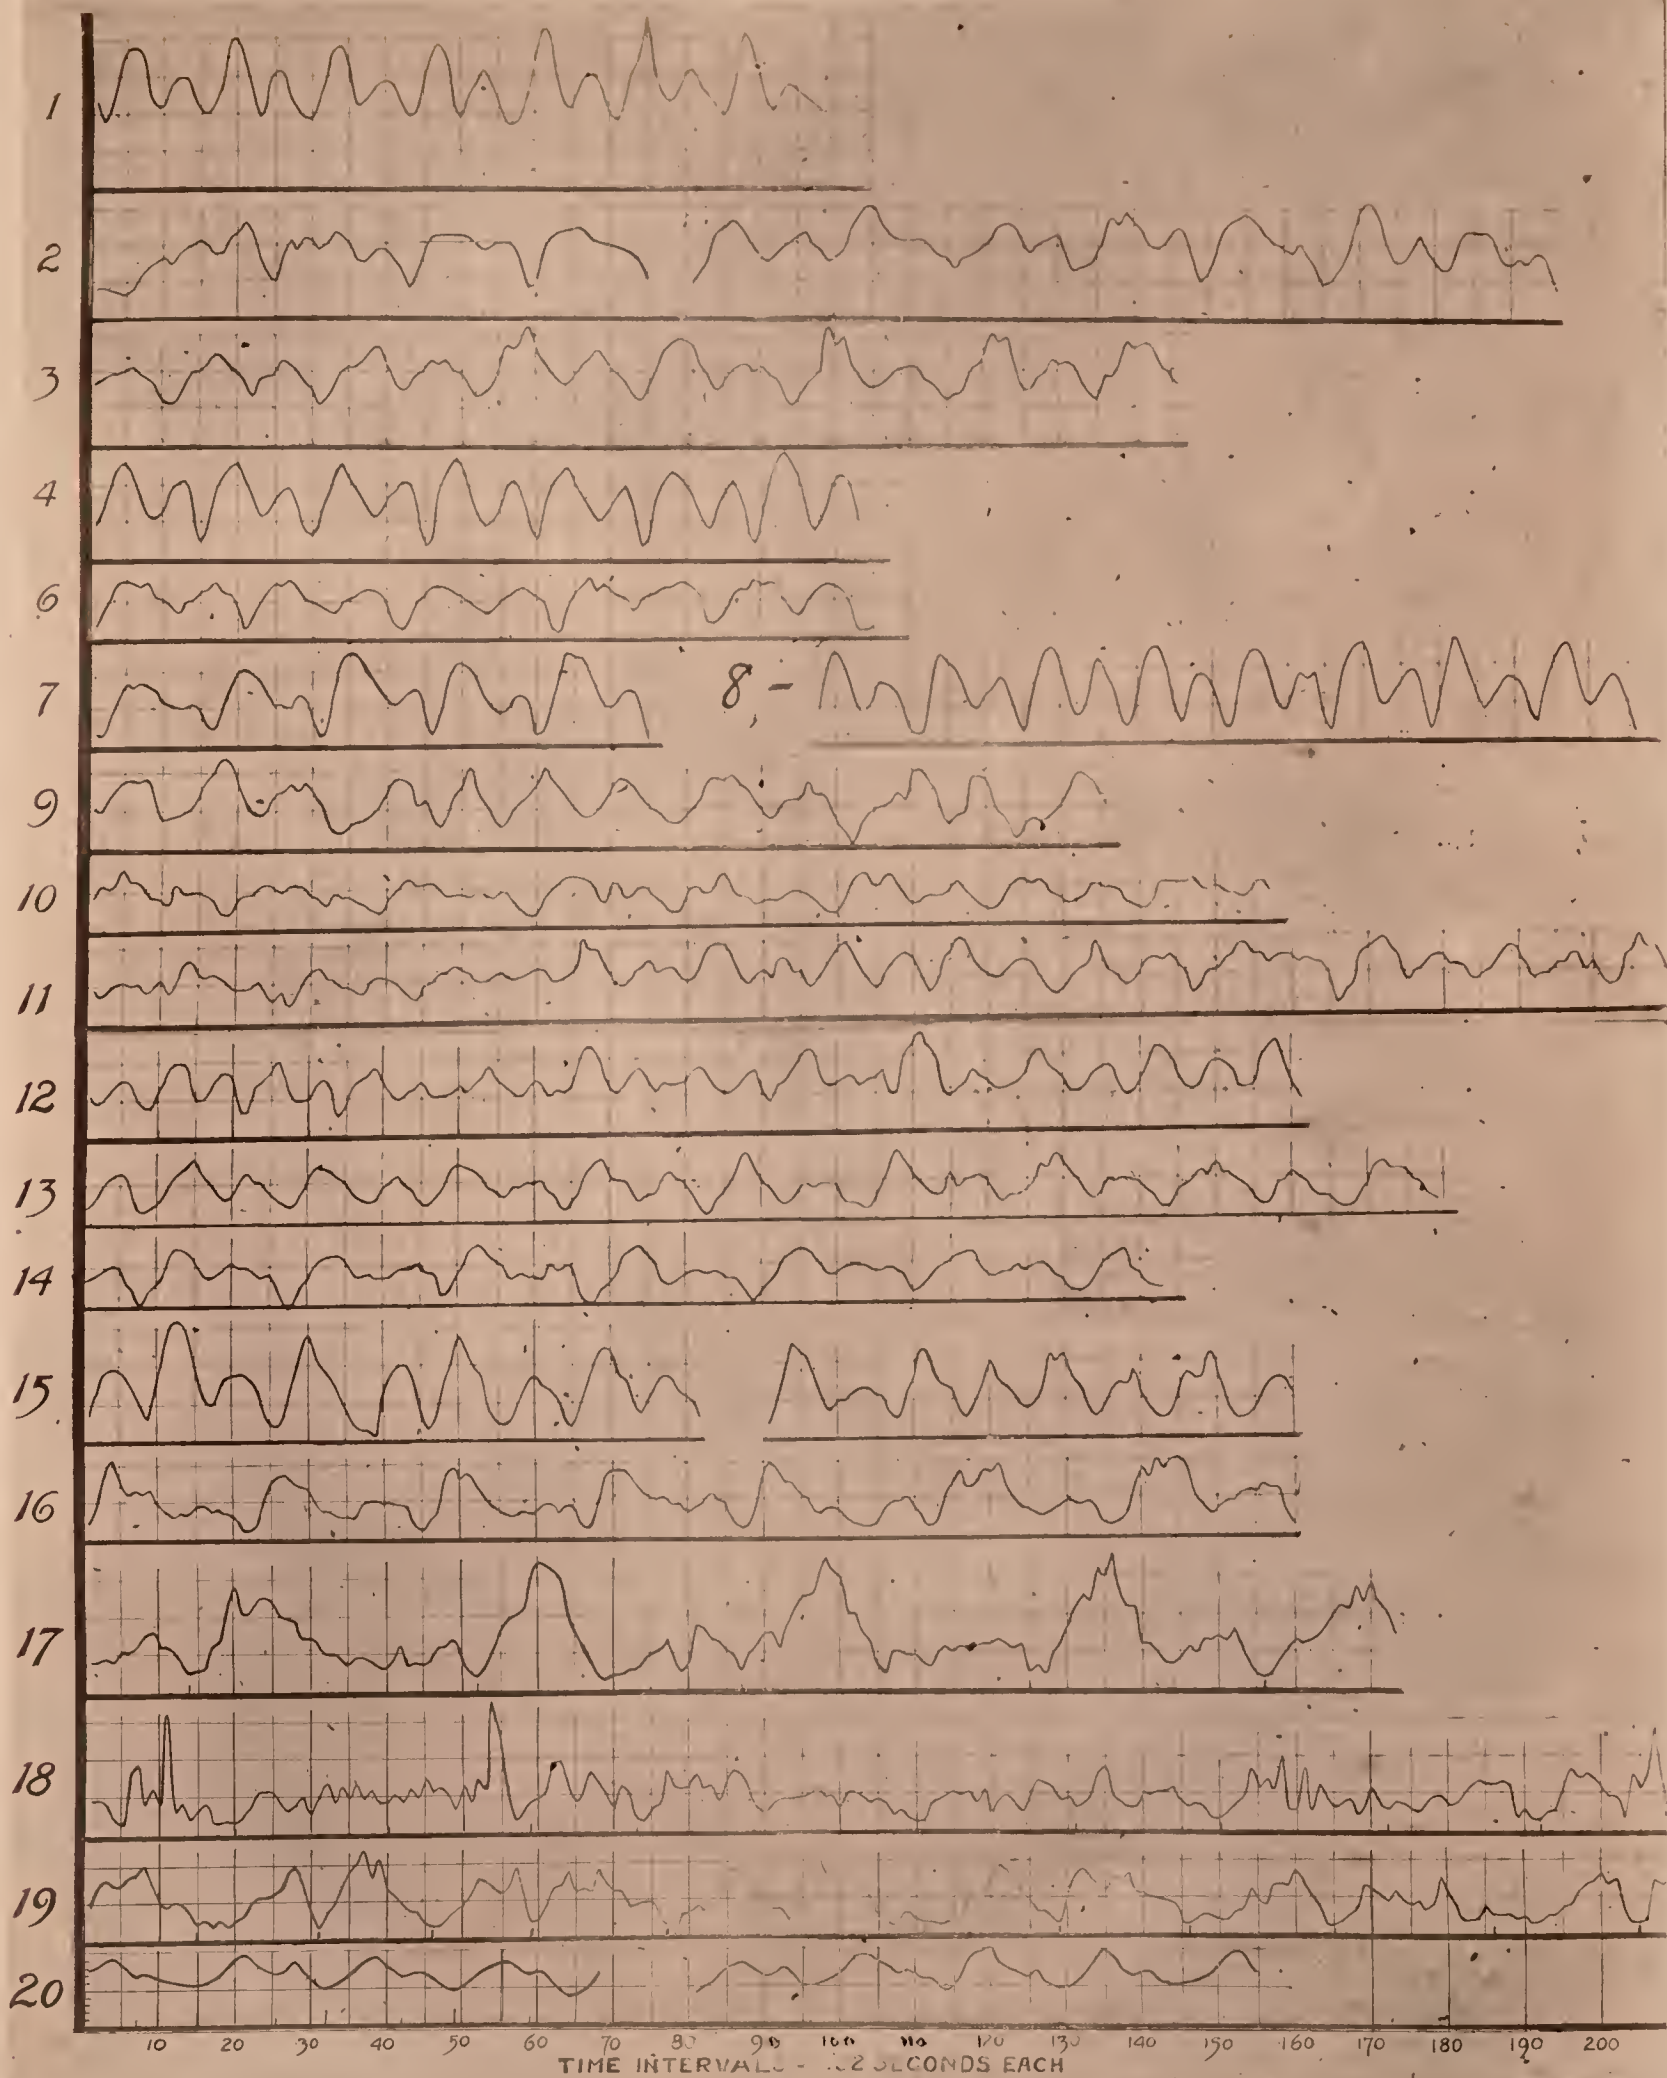 1
2
3
4
6
7 8,-
9
10
11
12
13
14
15
16
17
18
19
20
10 20 30 40 50 60 70 80 90 100 110 120 130 140 150 160 170 180 190 200
TIME INTERVALS - 2 SECONDS EACH